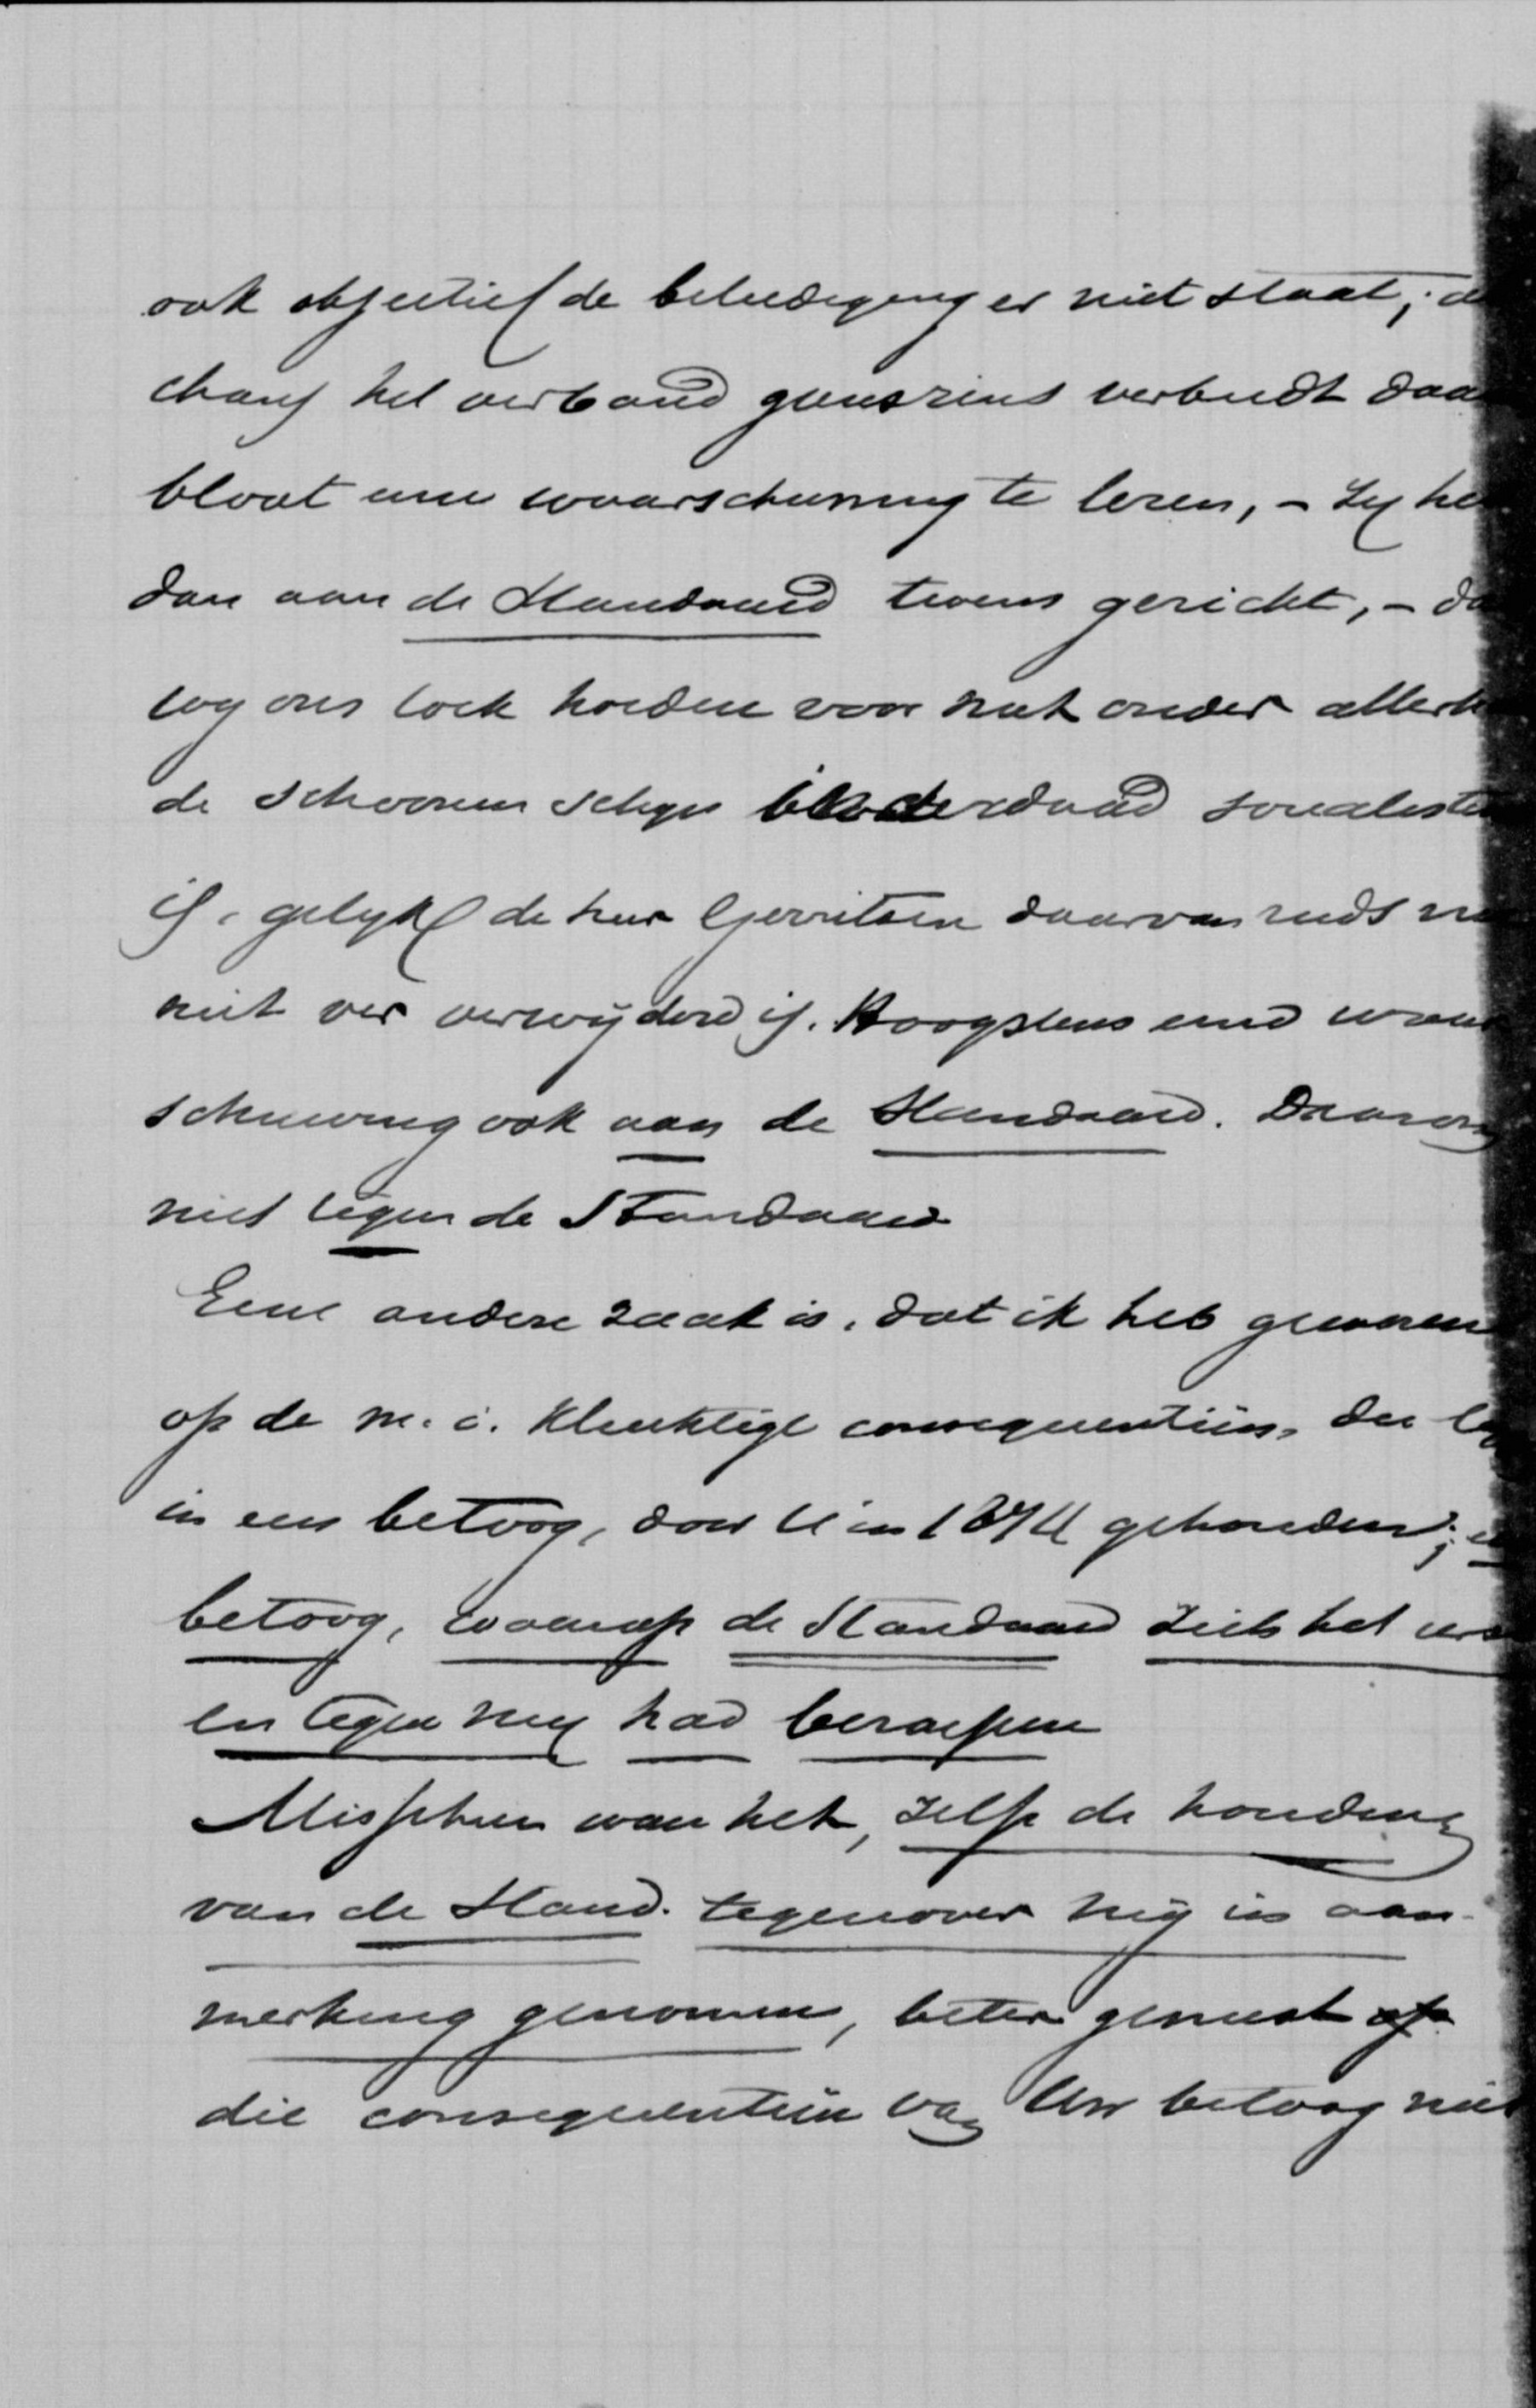 ook objectief de beleediging er niet staat; d
thans het verband geenszins verbiedt daa
bloot eene waarschuwing te lezen, – zij he
dan aan de Standaard tevens gericht, – da
wij ons toch hoeden voor wat onder allerle
de schoonen schijn inderdaad socialisti
is, gelijk de heer Gerritsen daarvan reeds
niet ver verwijderd is. Hoogstens eene waar
schuwing ook aan de Standaard. Daarom
niet tegen de Standaard
Eene andere zaak is, dat ik heb gewezen
op de m. i. bedenkelijke consequentiën, die
in een betoog, door U in 1874 gehouden;
betoog, waarop de Standaard zich het eerst
en tegen mij had beroepen
Misschien ware het, zelfs de houding
van de Stand. tegenover mij in aan-
merking genomen, beter geweest op
die consequentiën van Uw betoog niet